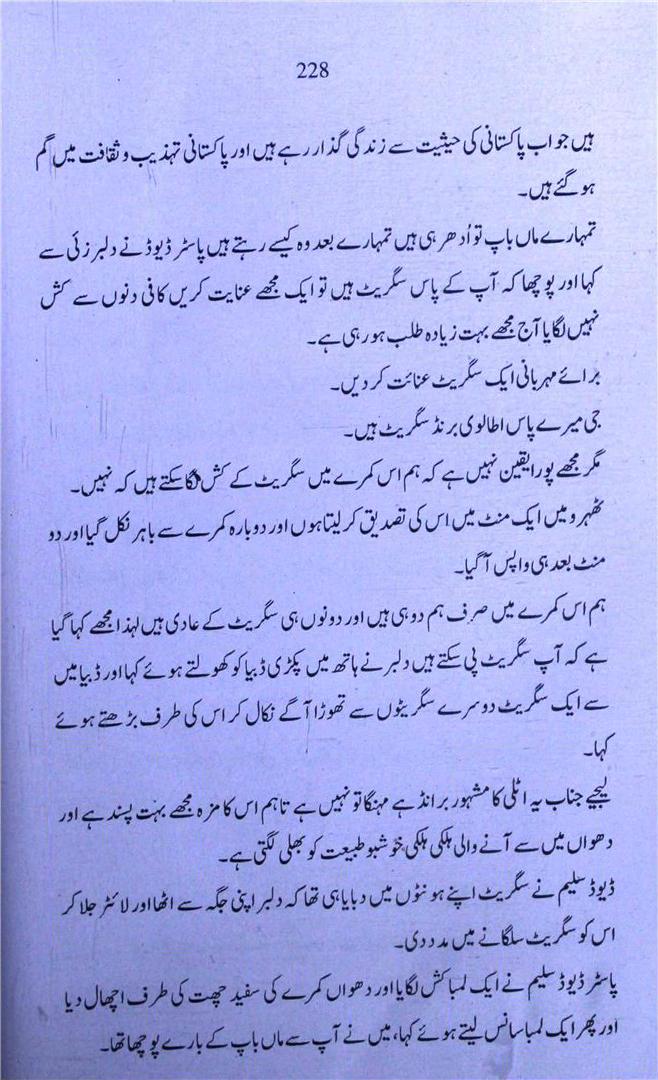 228
ہیں جو اب پاکستانی کی حیثیت سے زندگی گذار رہے ہیں اور پاکستانی تہذیب و ثقافت میں گم
ہو گئے ہیں۔
تمہارے ماں باپ تو اُدھر ہی ہیں تمہارے بعد وہ کیسے رہتے ہیں پاسٹر ڈیوڈ نے دلبرزئی سے
کہا اور پوچھا کہ آپ کے پاس سگریٹ ہیں تو ایک مجھے عنایت کریں کافی دنوں سے کش
نہیں لگایا آج مجھے بہت زیادہ طلب ہو رہی ہے۔
برائے مہربانی ایک سگریٹ عنائت کر دیں۔
جی میرے پاس اطالوی برنڈ سگریٹ ہیں۔
مگر مجھے پورا یقین نہیں ہے کہ ہم اس کمرے میں سگریٹ کے کش لگا سکتے ہیں کہ نہیں۔
ٹھہرو میں ایک منٹ میں اس کی تصدیق کر لیتا ہوں اور دوبارہ کمرے سے باہر نکل گیا اور دو
منٹ بعد ہی واپس آ گیا۔
ہم اس کمرے میں صرف ہم دو ہی ہیں اور دونوں ہی سگریٹ کے عادی ہیں لہذا مجھے کہا گیا
ہے کہ آپ سگریٹ پی سکتے ہیں دلبر نے ہاتھ میں پکڑی ڈبیا کو کھولتے ہوئے کہا اور ڈبیا میں
سے ایک سگریٹ دوسرے سگریٹوں سے تھوڑا آگے نکال کر اس کی طرف بڑھتے ہوئے
کہا۔
لیجیے جناب یہ اٹلی کا مشہور برانڈ ہے مہنگا تو نہیں ہے تاہم اس کا مزہ مجھے بہت پسند ہے اور
دھواں میں سے آنے والی ہلکی ہلکی خوشبو طبیعت کو بھلی لگتی ہے۔
ڈیوڈ سلیم نے سگریٹ اپنے ہونٹوں میں دبایا ہی تھا کہ دلبر اپنی جگہ سے اٹھا اور لائٹر جلا کر
اس کو سگریٹ سلگانے میں مدد دی۔
پاسٹر ڈیوڈ سلیم نے ایک لمبا کش لگایا اور دھواں کمرے کی سفید چھت کی طرف اچھال دیا
اور پھر ایک لمبا سانس لیتے ہوئے کہا، میں نے آپ سے ماں باپ کے بارے پوچھا تھا۔